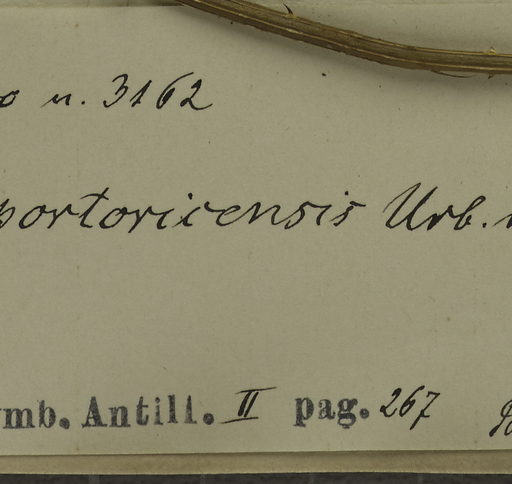 o n. 3162
portoricensis Urb.
ymb. Antill. II pag. 267